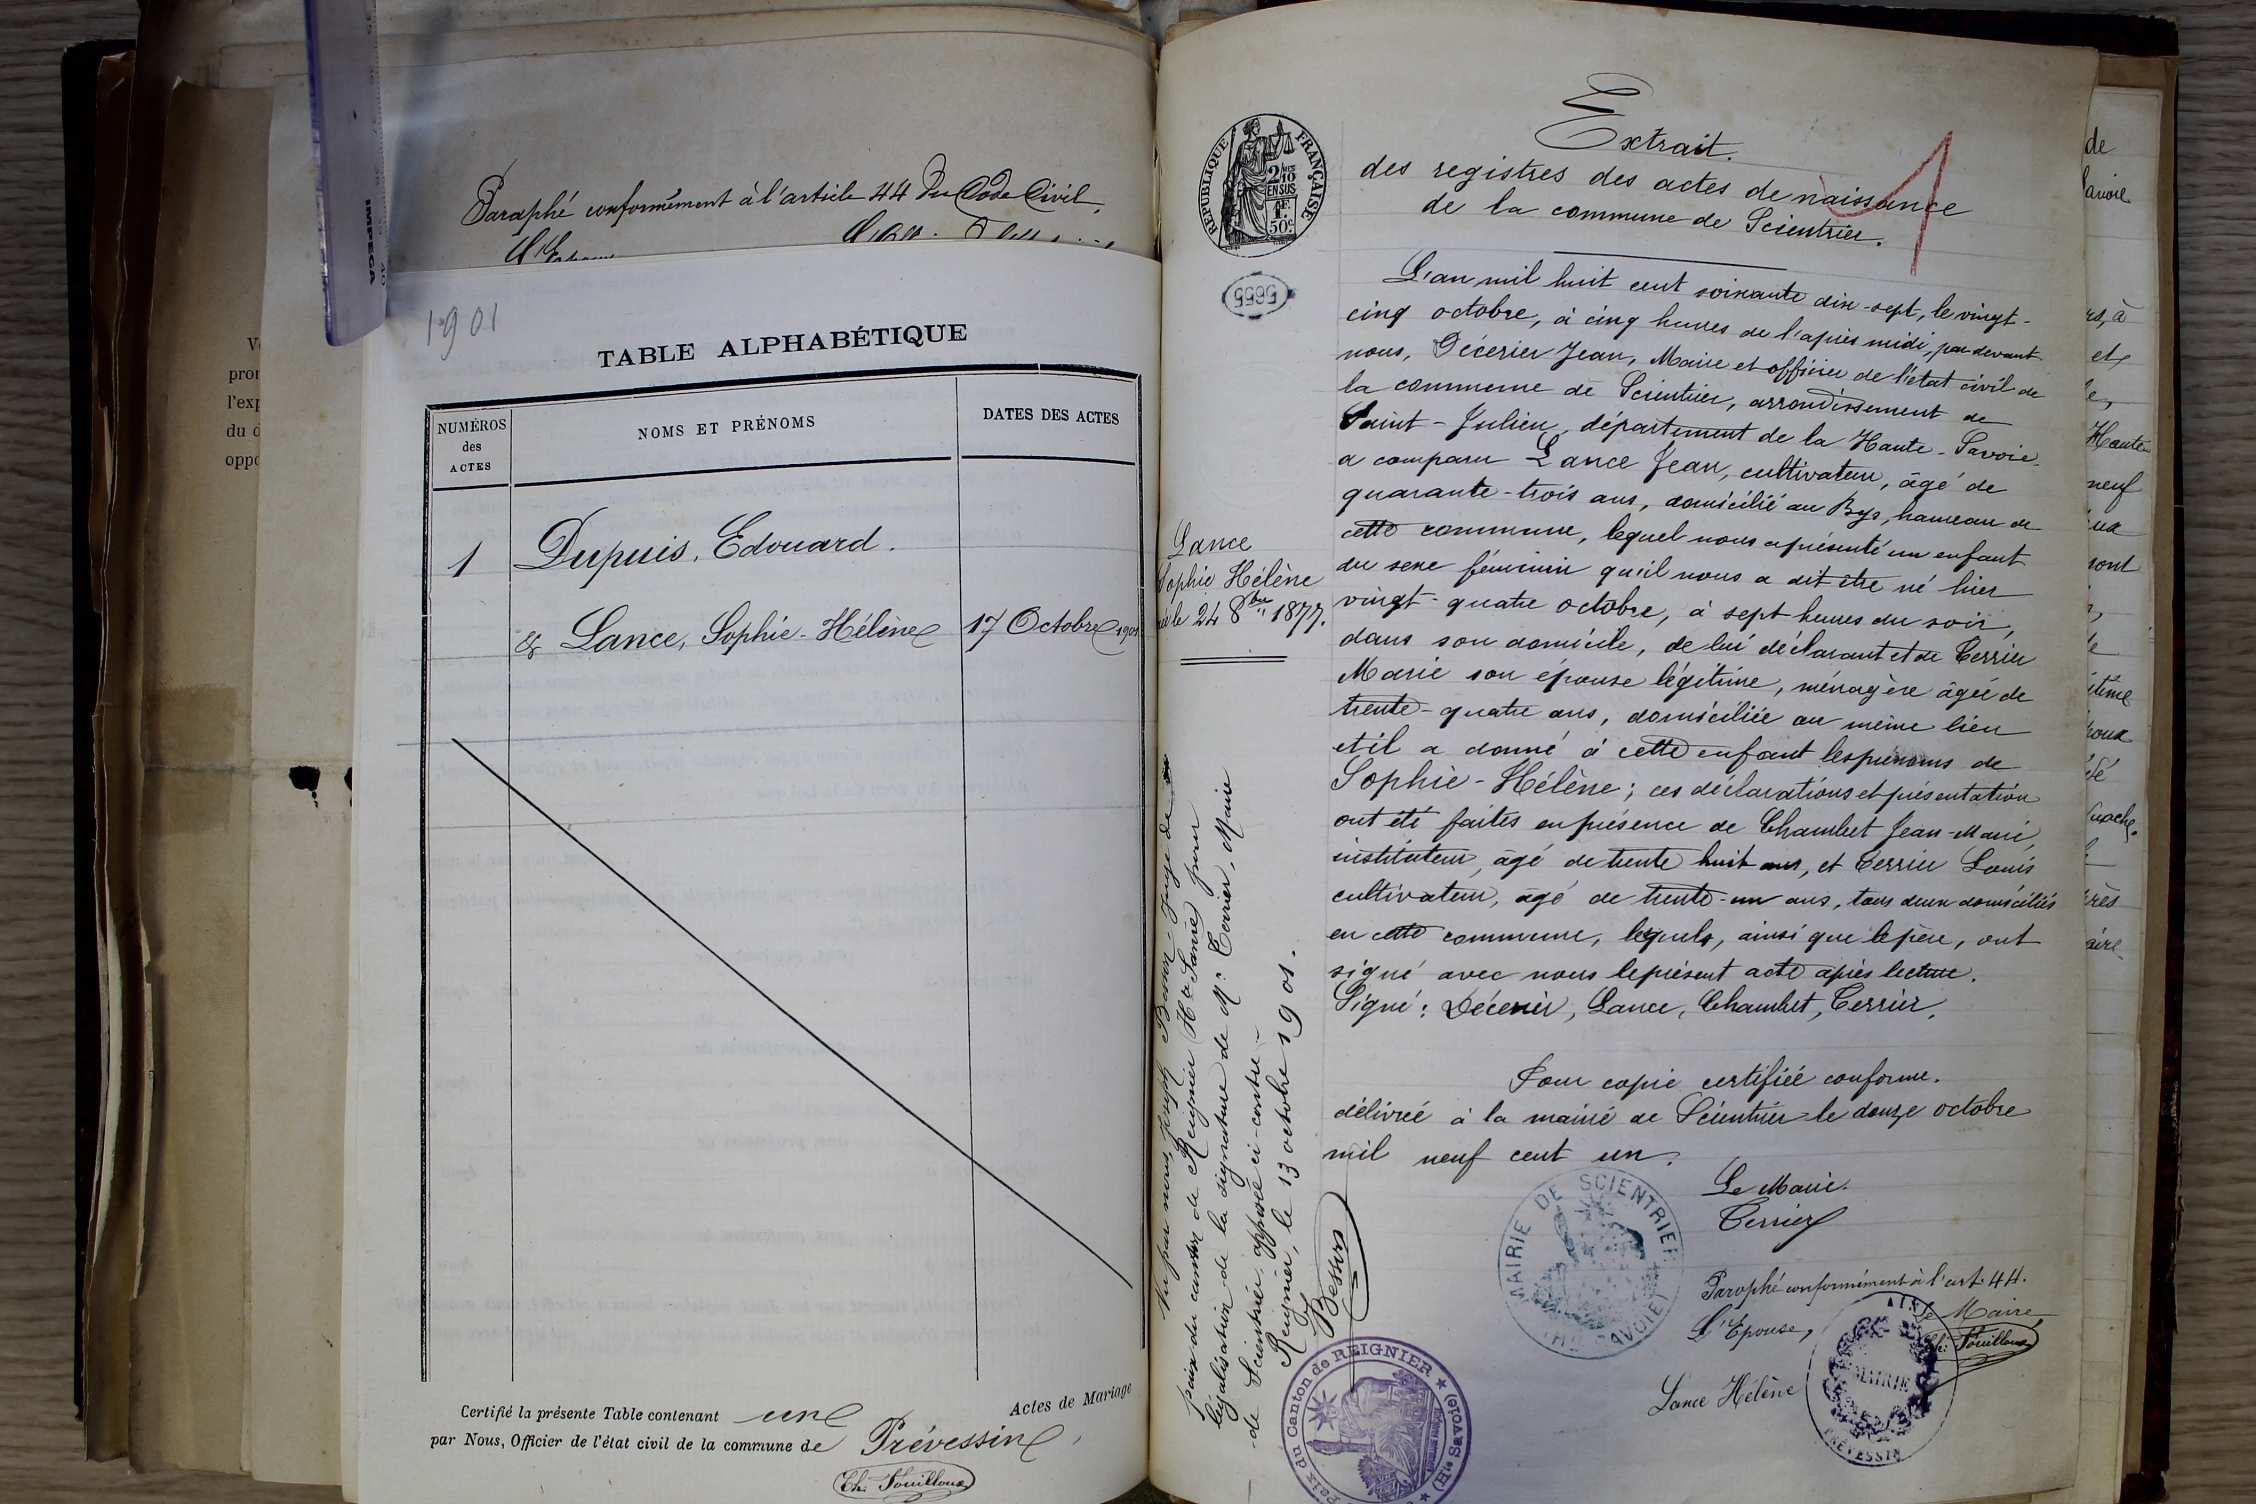 Paraphé conformément à l'article 44 du Code Civil.
1901
TABLE ALPHABÉTIQUE
NUMÉROS
des
ACTES
NOMS ET PRÉNOMS
DATES DES ACTES
1 Dupuis, Edouard.
& Lance, Sophie-Hélène 17 Octobre 1901
Certifié la présente Table contenant une Actes de Mariage
par Nous, Officier de l'état civil de la commune de Prévessin,
Ch. Fouilloux
RÉPUBLIQUE FRANÇAISE
2/10 EN SUS
1F. 50c.
5655
Extrait.
des registres des actes de naissance
de la commune de Scientrier.
1
Lance
Sophie Hélène
née le 24 8bre 1877.
L'an mil huit cent soixante dix-sept, le vingt-
cinq octobre, à cinq heures de l'après midi, par devant
nous, Décerier Jean, Maire et officier de l'état civil de
la commune de Scientrier, arrondissement de
Saint-Julien, département de la Haute-Savoie
a comparu Lance Jean, cultivateur, âgé de
quarante-trois ans, domicilié au Bys, hameau de
cette commune, lequel nous a présenté un enfant
du sexe féminin qu'il nous a dit être né hier
vingt-quatre octobre, à sept heures du soir,
dans son domicile, de lui déclarant et de Terrier
Marie son épouse légitime, ménagère âgée de
trente-quatre ans, domiciliée au même lieu
et il a donné à cette enfant les prénoms de
Sophie-Hélène; ces déclarations et présentation
ont été faites en présence de Chambet Jean-Marie,
instituteur, âgé de trente huit ans, et Terrier Louis
cultivateur, âgé de trente-un ans, tous deux domiciliés
en cette commune, lesquels, ainsi que le père, ont
signé avec nous le présent acte après lecture.
Signé: Décerier, Lance, Chambet, Terrier.
Pour copie certifiée conforme.
délivrée à la mairie de Scientrier le douze octobre
mil neuf cent un.
Le Maire.
Terrier
MAIRIE DE SCIENTRIER
(HTE SAVOIE)
Paraphé conformément à l'art. 44.
L'Epouse, Le Maire,
Ch. Fouilloux
Lance Hélène
AIN
MAIRIE
PRÉVESSIN
Vu par nous, Joseph Besson Juge de
paix du canton de Reignier (Hte Savoie) pour
légalisation de la signature de Mr. Terrier, Maire
de Scientrier, apposée ci-contre.
Reignier, le 13 octobre 1901.
Besson
Paix du Canton de REIGNIER (Hte Savoie)
IMPEGA
de
Savoie
rs, à
et
le,
Haute
neuf
sont